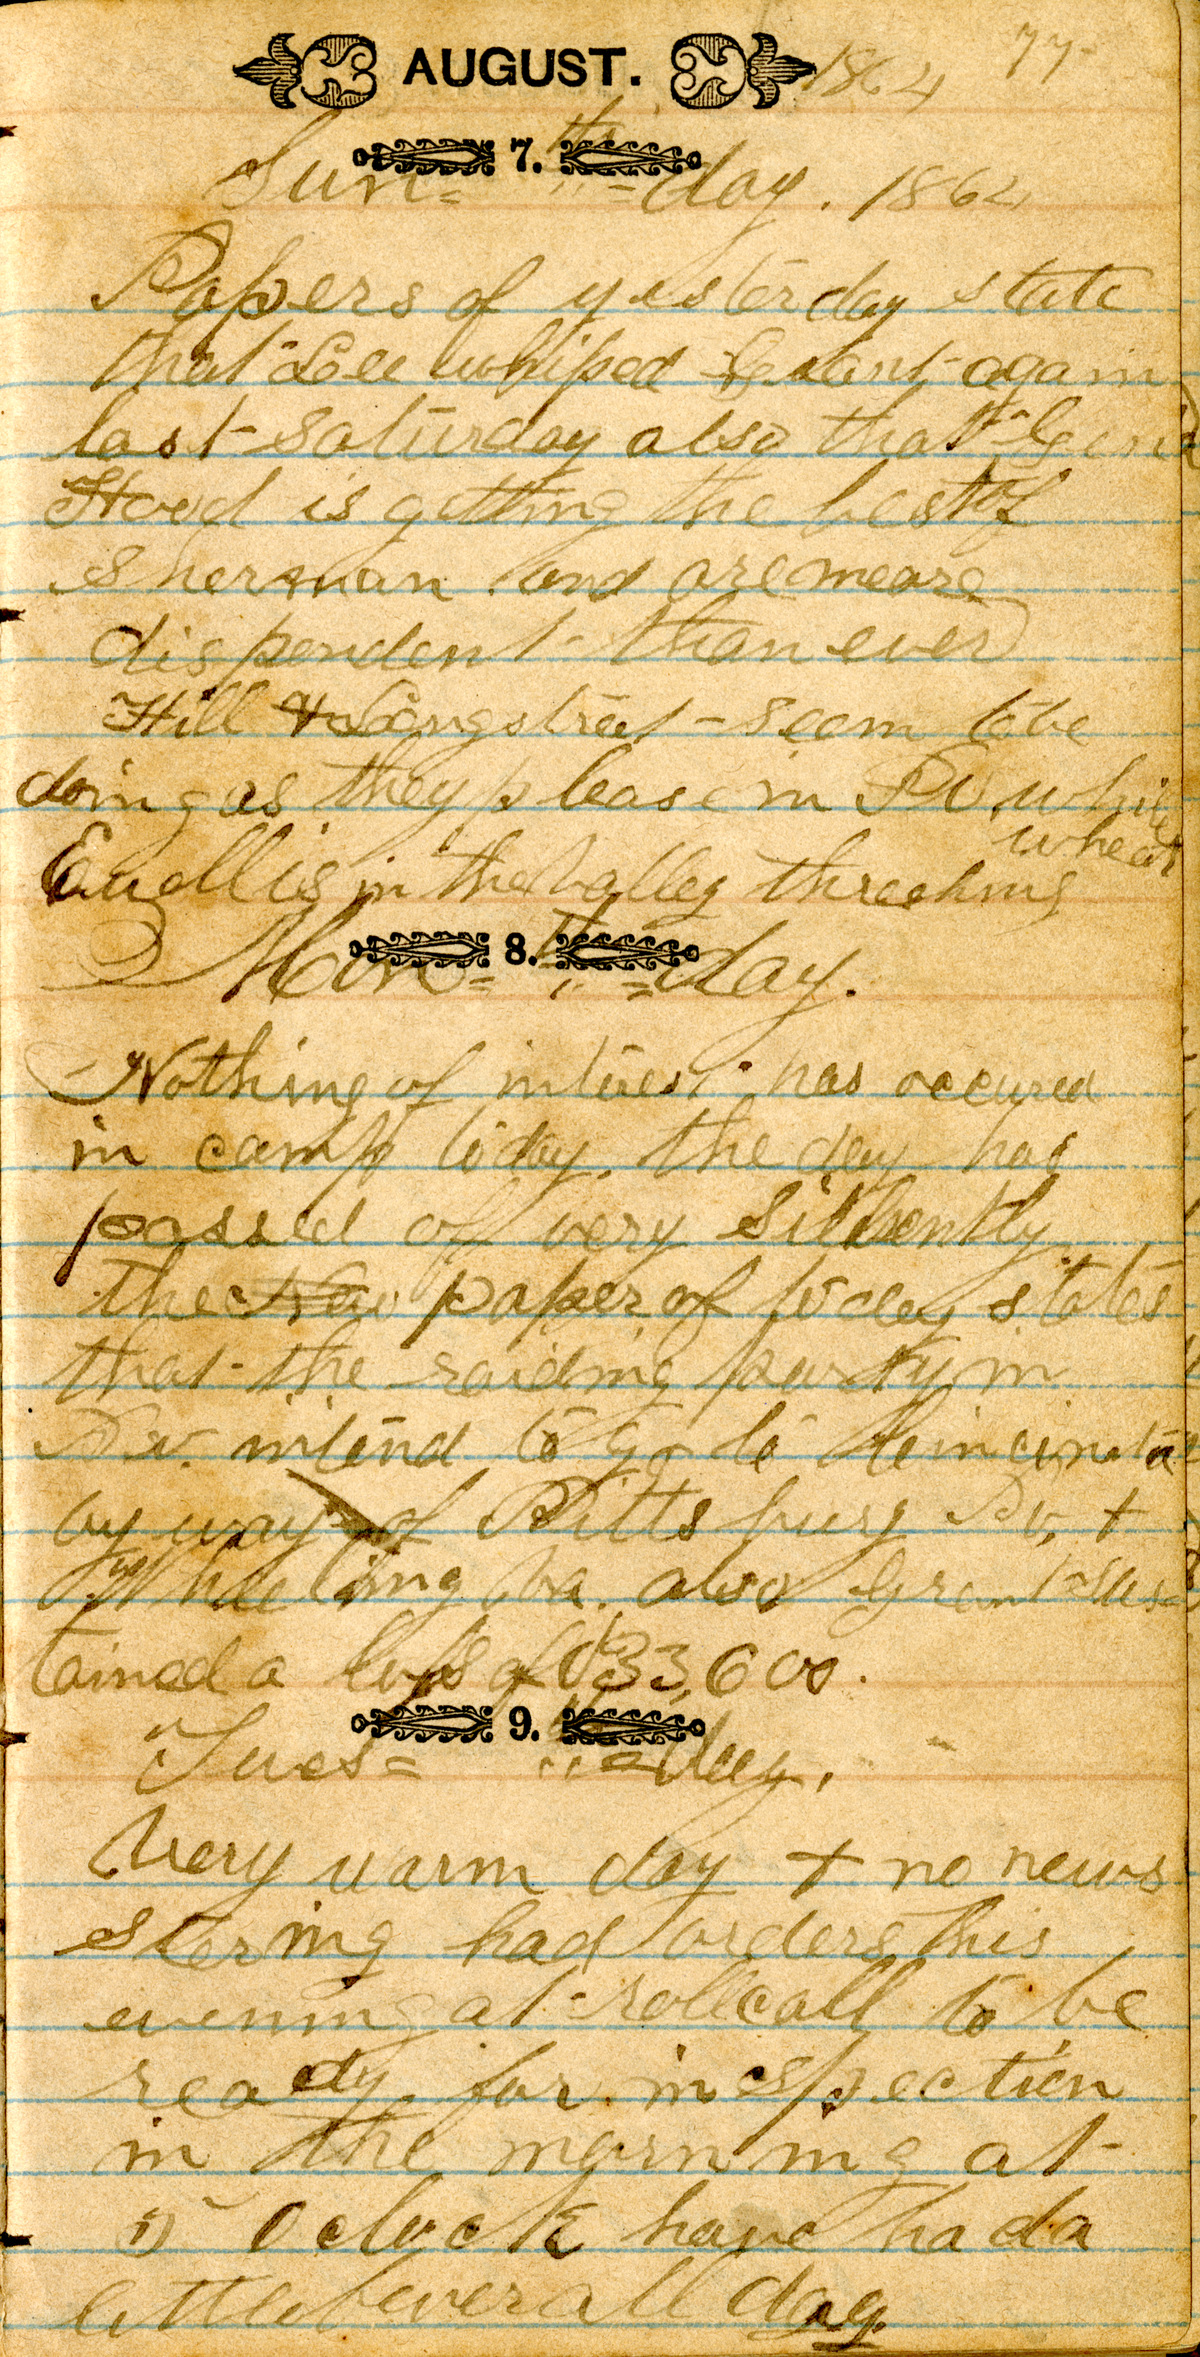 AUGUST. 1864 77-
7.
Sun= th =day. 1864
Papers of yesterday state
that Lee whiped Grant again
last Saturday also that Genrl
Hood is getting the best of
Sherman and are meare
dispondent than ever
Hill & Longstreet seem to be
doing as they please in Pv. while
Euell is in the valley threehing wheat
8.
Mon= th =day.
Nothing of interest has occured
in camp today. the day has
passed of very silently
the paper of today states
that the raiding party in
Pv. intend to go to
by way of Pittsburg Pv. +
Wheeling va. also Grant sus-
tained a loss of 33,600.
9.
Tues= th =day.
Very warm day + no news
stering had orders this
evening at rollcall to be
ready for inespection
in the morning at
Oclock have had a
little fever all day